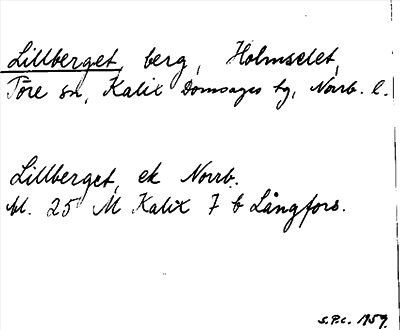 Lillberget, berg, Holmselet,
Töre sn, Kalix Domsagas tg, Norrb. l.
Lillberget, ek Norrb.
bl. 25 M Kalix 7 b Långfors.
S.P.C. 1959.